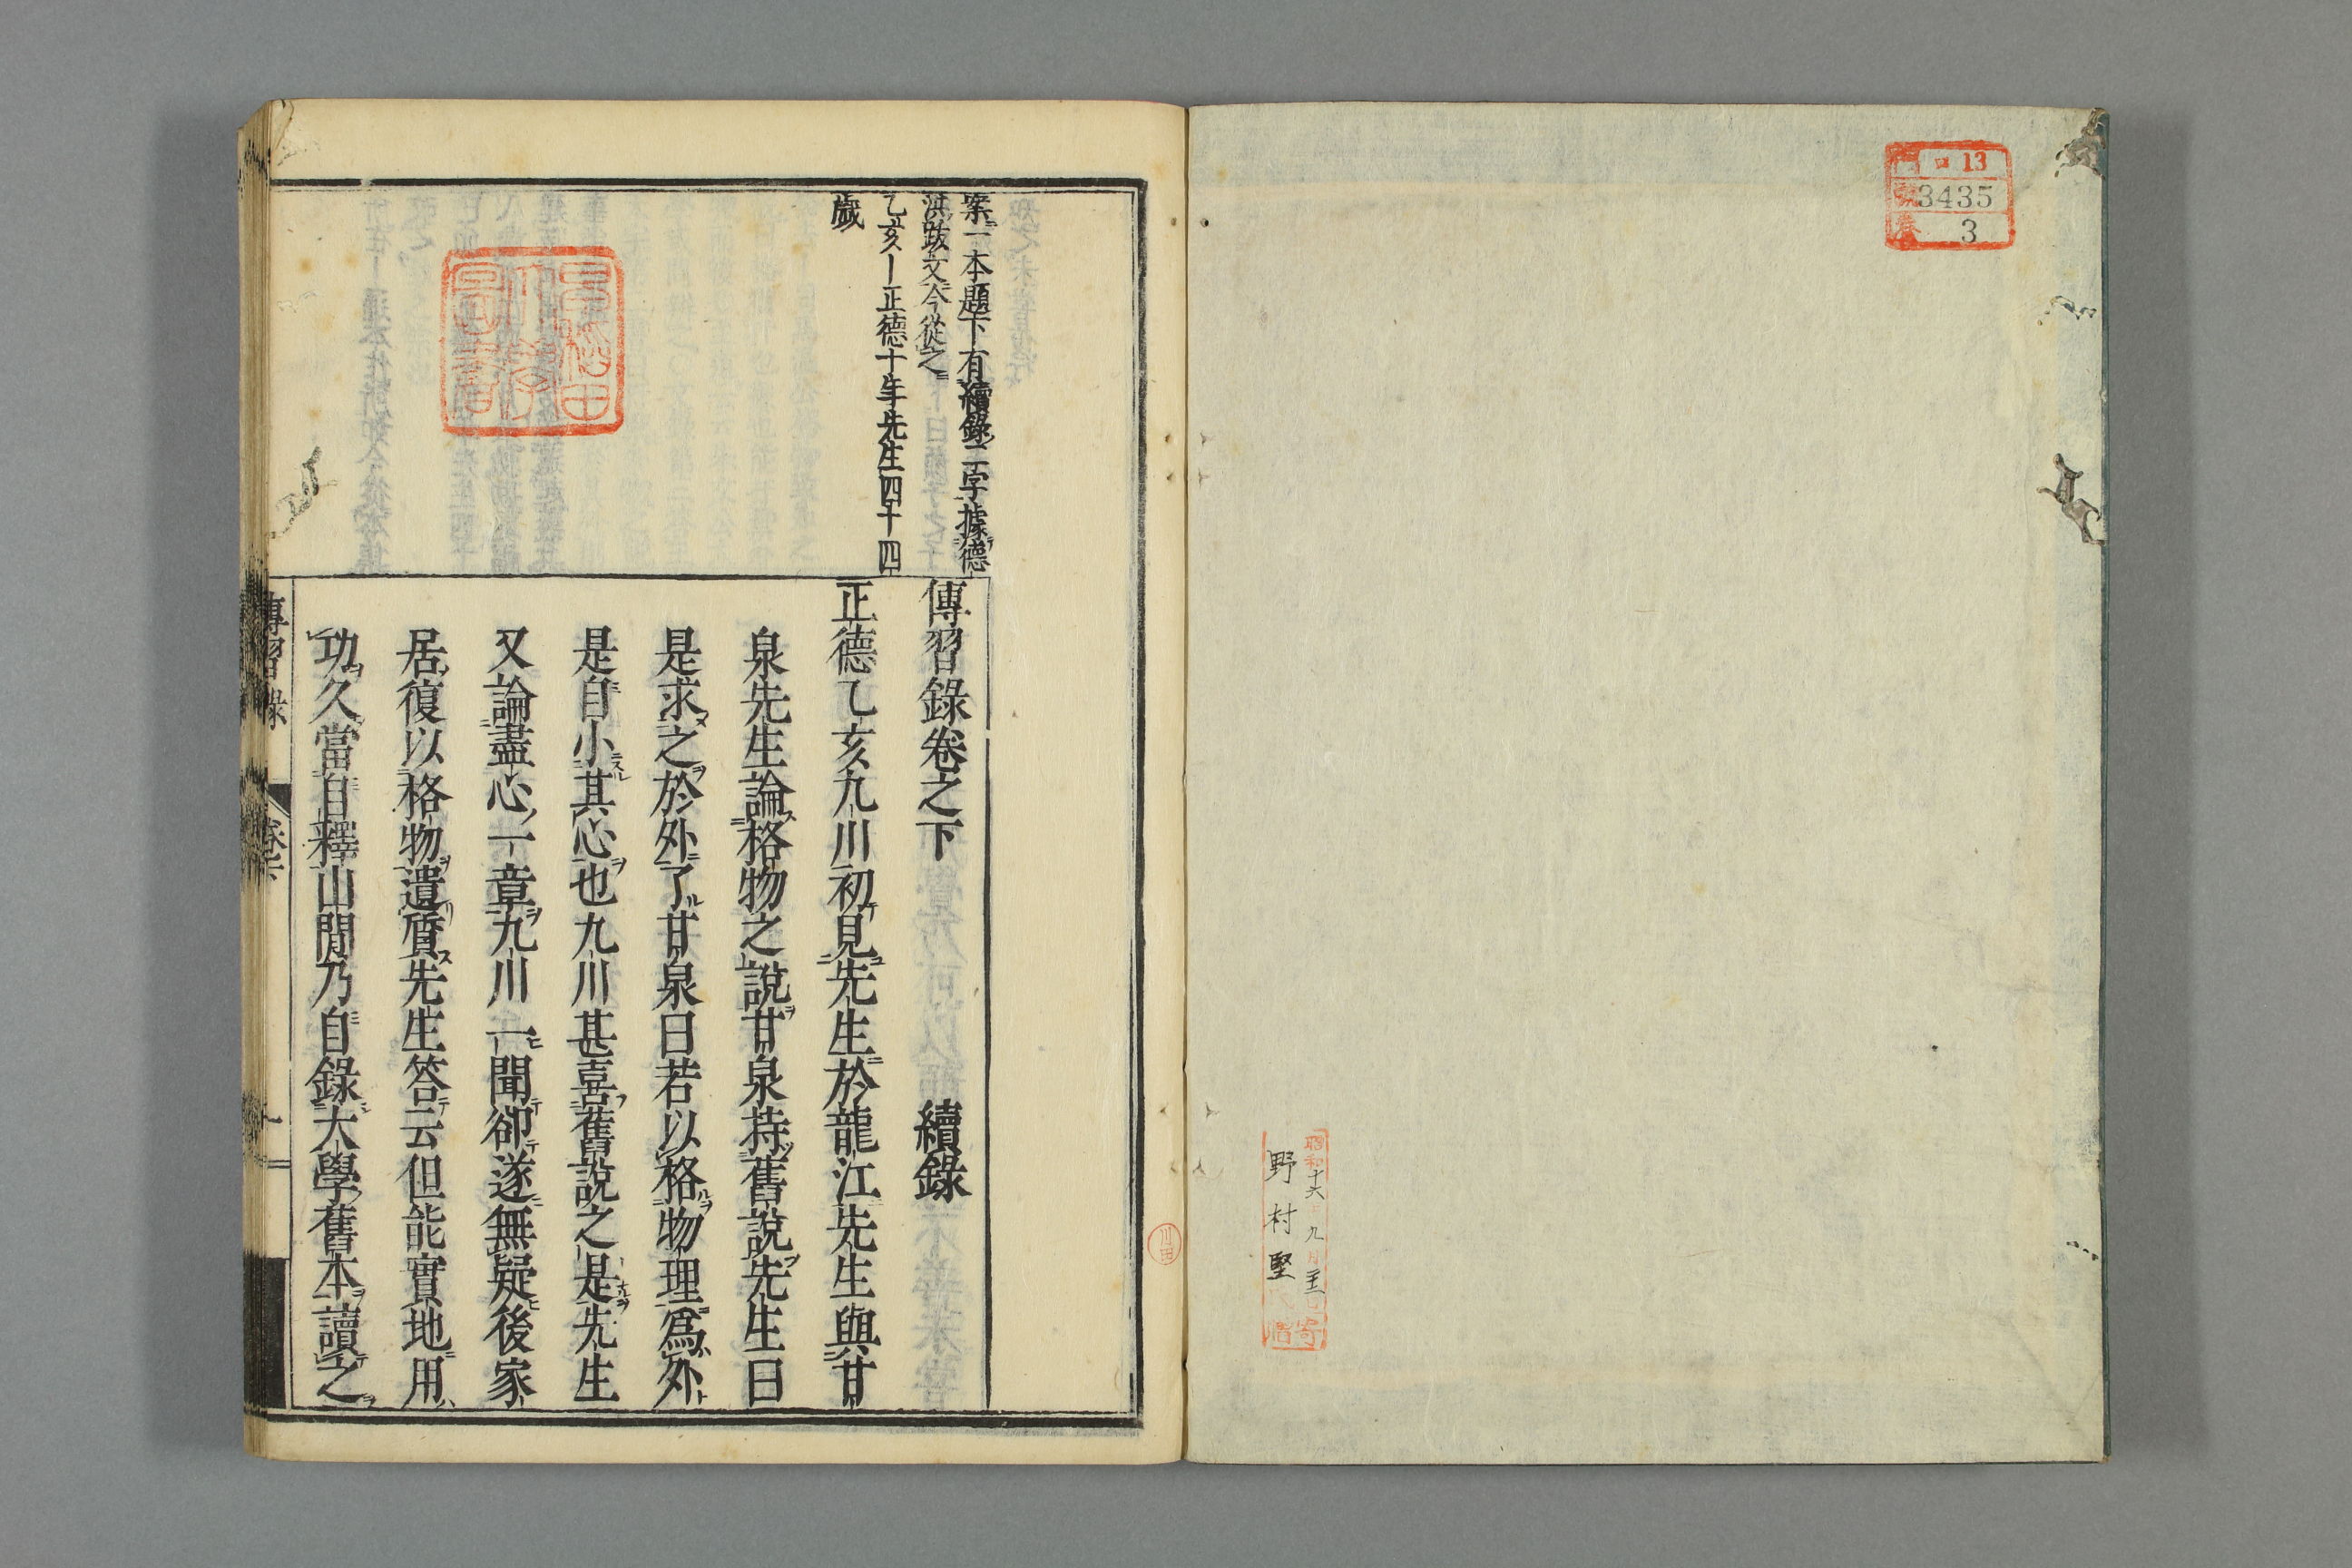 ロ 13
3435
3
昭和十六年九月
野村堅
案一本題下有續錄二字據德
洪跋文今從之
乙亥ー正德十年先生四十四
歲
早稻田
大學
圖書
傳習錄卷之下 續錄
正德乙亥九川初見先生於龍江先生與甘
泉先生論格物之說甘泉持舊說先生曰
是求之於外了甘泉曰若以格物理爲外
是自小其心也九川甚喜舊說之是先生
又論盡心一章九川一聞卻遂無疑後家
居復以格物遺質先生答云但能實地用
功久當自釋山間乃自錄大學舊本讀之
傳習錄 卷下 一
川田